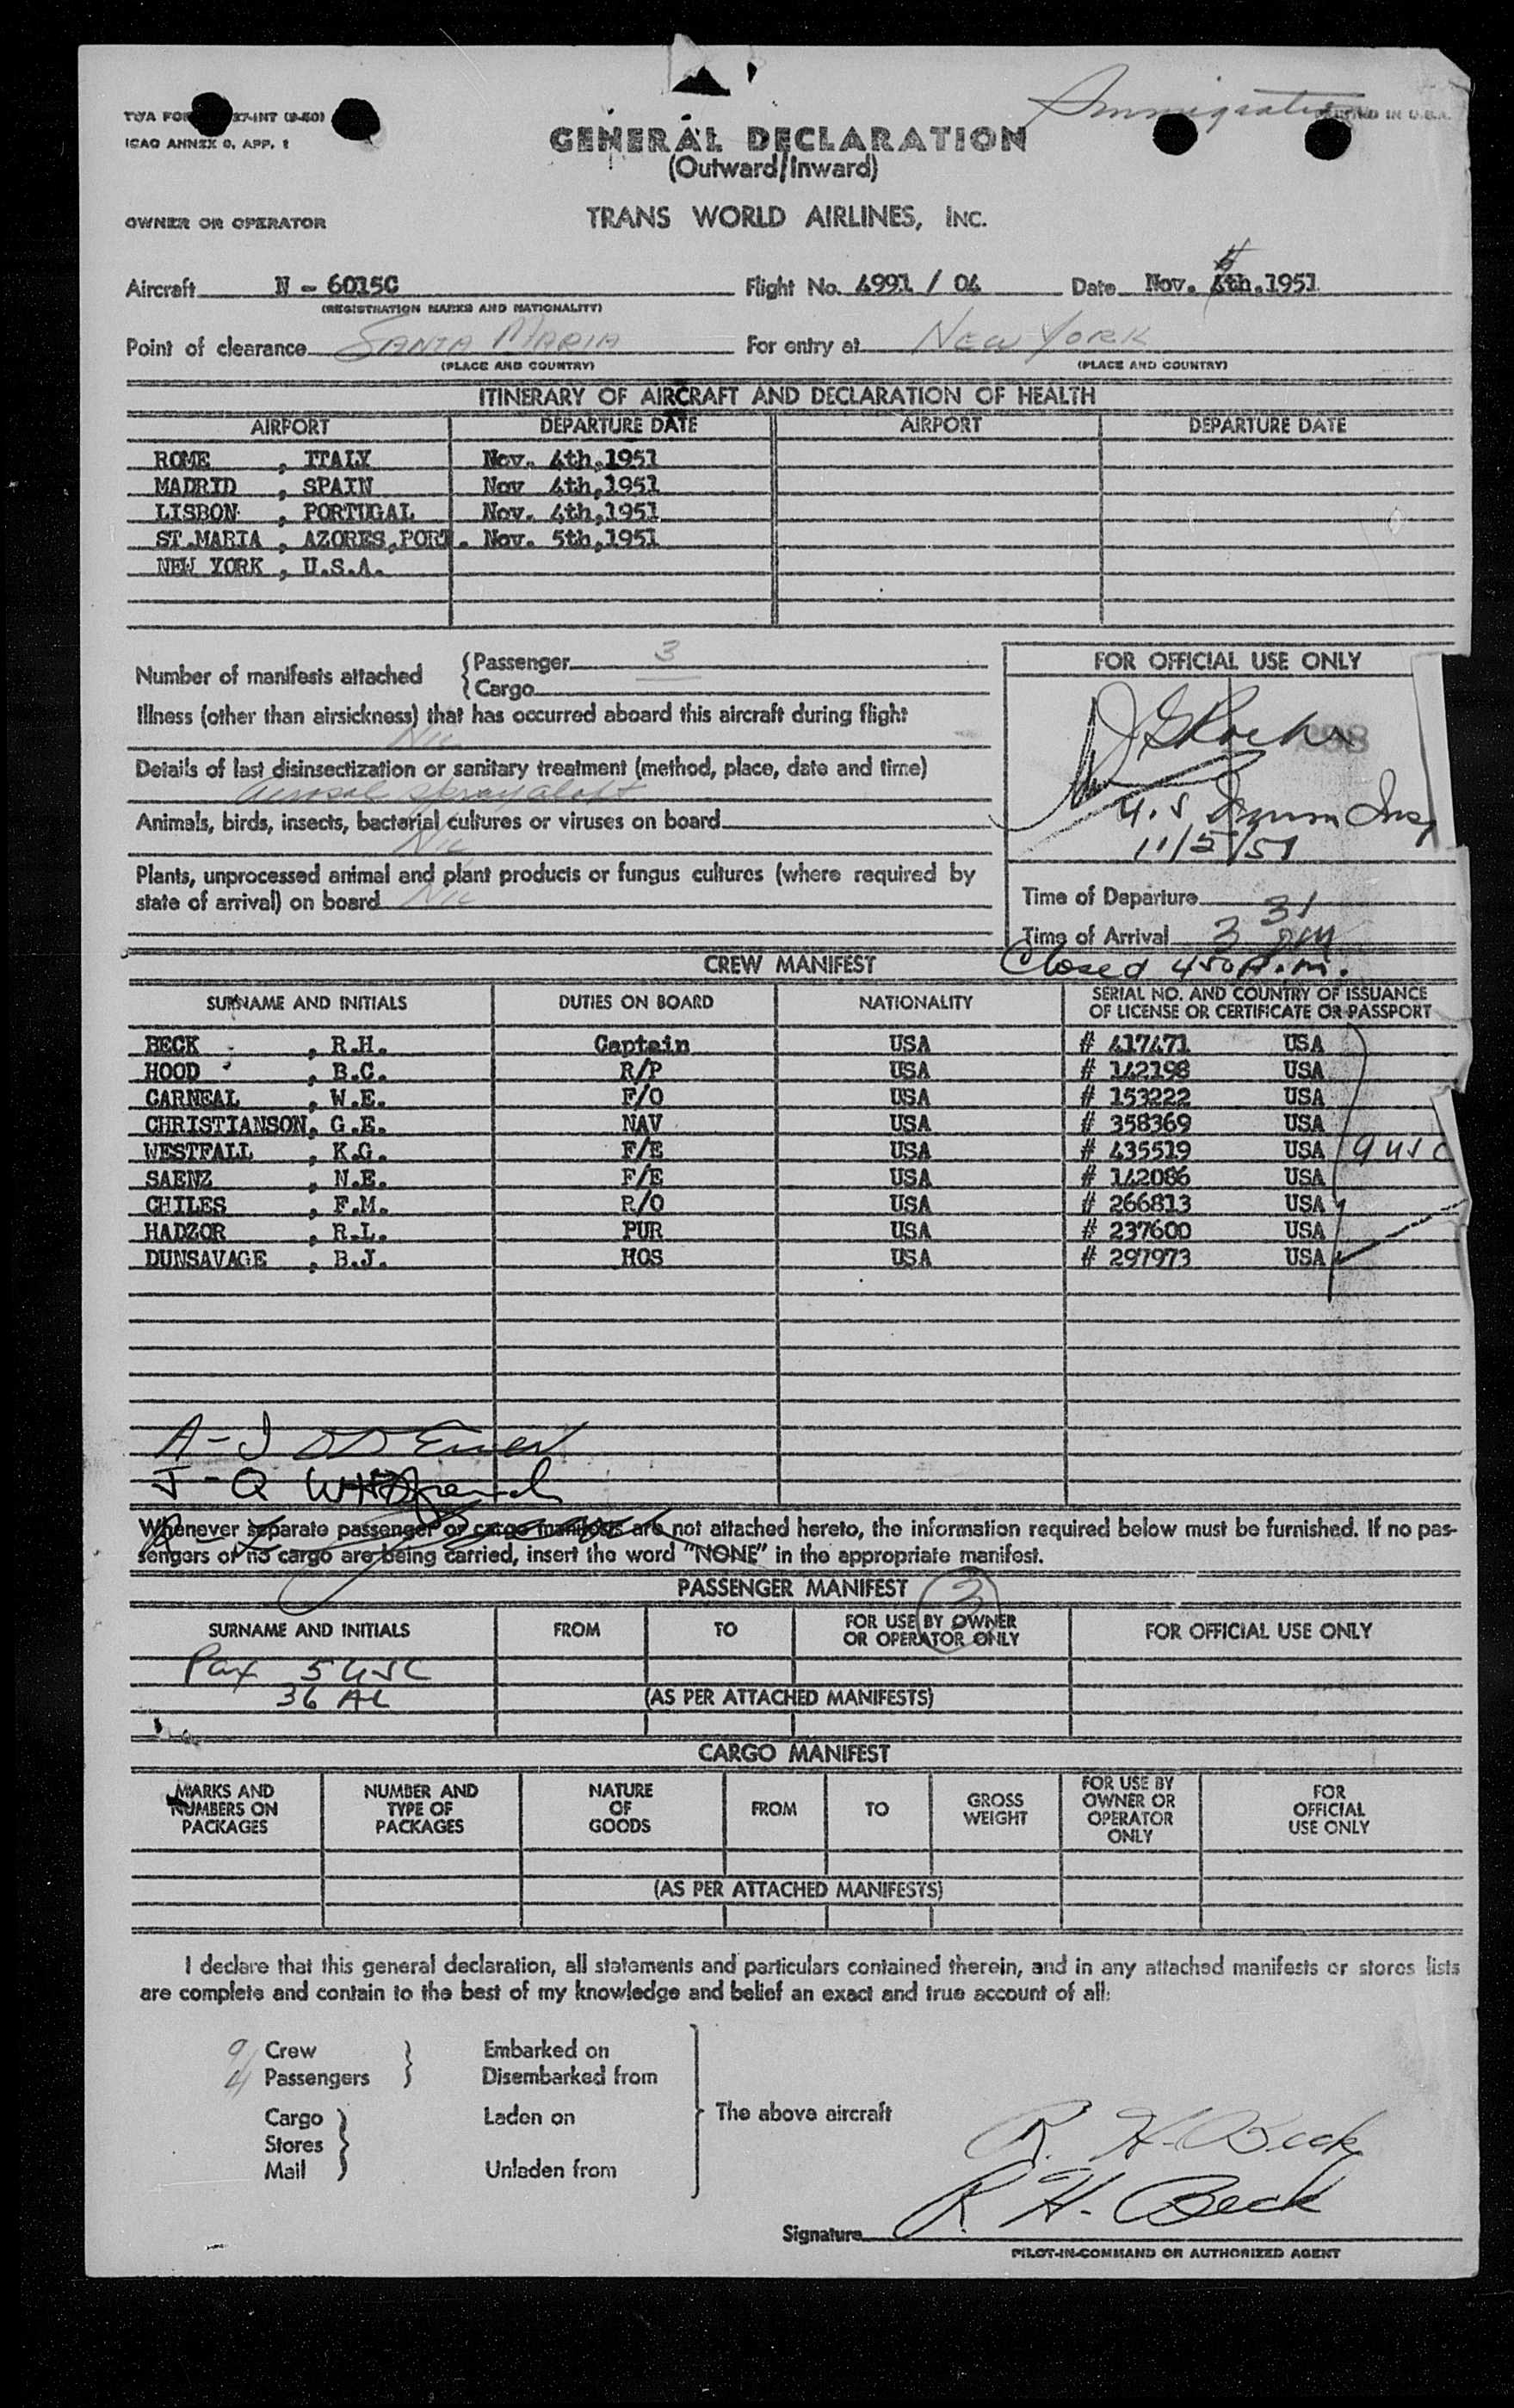 Immigration
TWA FO 37-INT (9-50)
ICAO ANNEX 9, APP. 1
IN U.S.A.
GENERAL DECLARATION
(Outward/Inward)
OWNER OR OPERATOR TRANS WORLD AIRLINES, INC.
Aircraft N - 6015C Flight No. 4991 / 04 Date Nov. 4th, 1951
(REGISTRATION MARKS AND NATIONALITY)
Point of clearance SANTA MARIA For entry at NEW YORK
(PLACE AND COUNTRY) (PLACE AND COUNTRY)
ITINERARY OF AIRCRAFT AND DECLARATION OF HEALTH
AIRPORT DEPARTURE DATE AIRPORT DEPARTURE DATE
ROME , ITALY Nov. 4th,1951
MADRID , SPAIN Nov 4th,1951
LISBON , PORTUGAL Nov. 4th,1951
ST.MARIA , AZORES,PORT. Nov. 5th,1951
NEW YORK , U.S.A.
Number of manifests attached
Passenger 3
Cargo
Illness (other than airsickness) that has occurred aboard this aircraft during flight
Nil
Details of last disinsectization or sanitary treatment (method, place, date and time)
Aerosol spray aloft
Animals, birds, insects, bacterial cultures or viruses on board
Nil
Plants, unprocessed animal and plant products or fungus cultures (where required by
state of arrival) on board Nil
FOR OFFICIAL USE ONLY
U.S. Immn Insp
11/5/51
Time of Departure
Time of Arrival 3 31 PM
Closed 450 P.m.
CREW MANIFEST
SURNAME AND INITIALS DUTIES ON BOARD NATIONALITY SERIAL NO. AND COUNTRY OF ISSUANCE
OF LICENSE OR CERTIFICATE OR PASSPORT
BECK , R.H. Captain USA # 417471 USA
HOOD , B.C. R/P USA # 142198 USA
CARNEAL , W.E. F/O USA # 153222 USA
CHRISTIANSON, G.E. NAV USA # 358369 USA
WESTFALL , K.G. F/E USA # 435519 USA 9 USC
SAENZ , N.E. F/E USA # 142086 USA
CHILES , F.M. R/O USA # 266813 USA
HADZOR , R.L. PUR USA # 237600 USA
DUNSAVAGE , B.J. HOS USA # 297973 USA
A - I
J - Q
Whenever separate passenger or cargo manifests are not attached hereto, the information required below must be furnished. If no pas-
sengers or no cargo are being carried, insert the word "NONE" in the appropriate manifest.
PASSENGER MANIFEST 3
SURNAME AND INITIALS FROM TO FOR USE BY OWNER
OR OPERATOR ONLY FOR OFFICIAL USE ONLY
Pax 5 USC
36 AL
(AS PER ATTACHED MANIFESTS)
CARGO MANIFEST
MARKS AND
NUMBERS ON
PACKAGES
NUMBER AND
TYPE OF
PACKAGES
NATURE
OF
GOODS
FROM
TO
GROSS
WEIGHT
FOR USE BY
OWNER OR
OPERATOR
ONLY
FOR
OFFICIAL
USE ONLY
(AS PER ATTACHED MANIFESTS)
I declare that this general declaration, all statements and particulars contained therein, and in any attached manifests or stores lists
are complete and contain to the best of my knowledge and belief an exact and true account of all:
9 Crew Embarked on
41 Passengers Disembarked from
Cargo Laden on The above aircraft
Stores
Mail Unladen from
R. H. Beck
Signature R. H. Beck
PILOT-IN-COMMAND OR AUTHORIZED AGENT